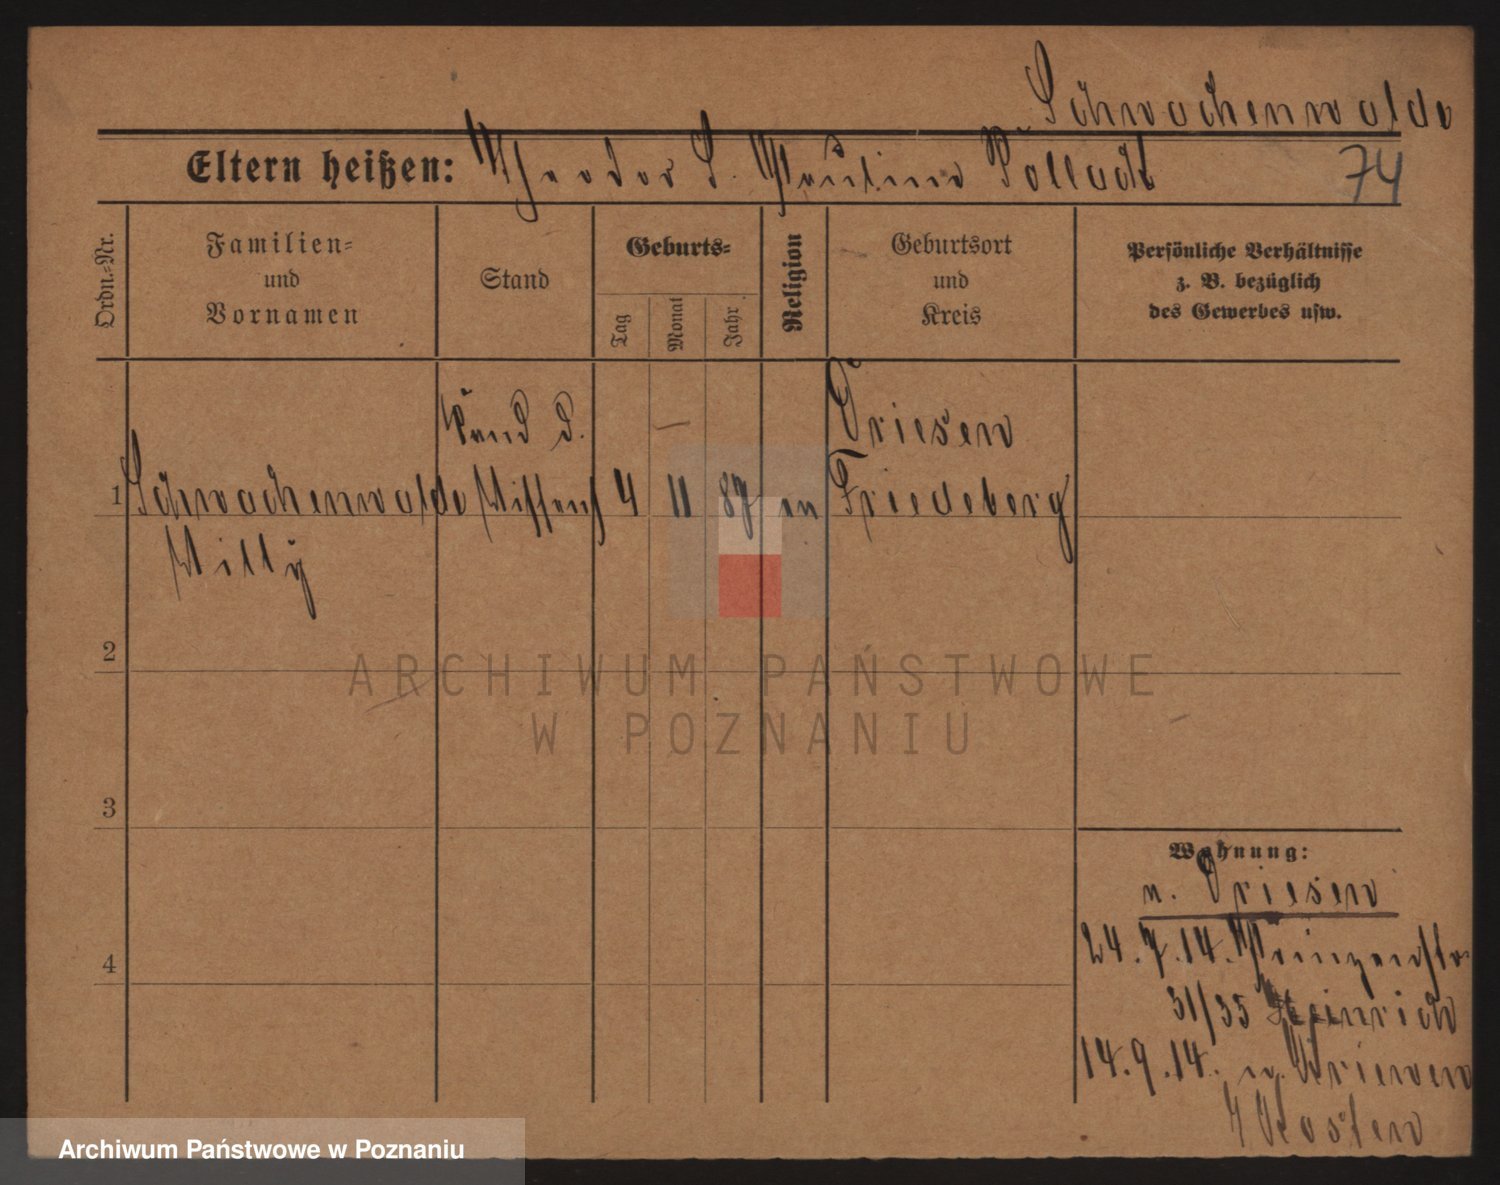 Schwachenwalde
Eltern heißen: Theodor S. Pauline Pollack
74
Ordn.=Nr.
Familien=
und
Vornamen
Stand
Geburts=
Tag
Monat
Jahr
Religion
Geburtsort
und
Kreis
Persönliche Verhältnisse
z. B. bezüglich
des Gewerbes usw.
Kand d.
Driesen
1 Schwachenwalde 4 11 87 ev Friedeberg
Willy
2
3
4
Wohnung:
n. Driesen
24.7.14. Prinzenstr.
31/35 Heinrich
14.9.14. n. Kriewen
Kosten
ARCHIWUM PAŃSTWOWE
W POZNANIU
Archiwum Państwowe w Poznaniu